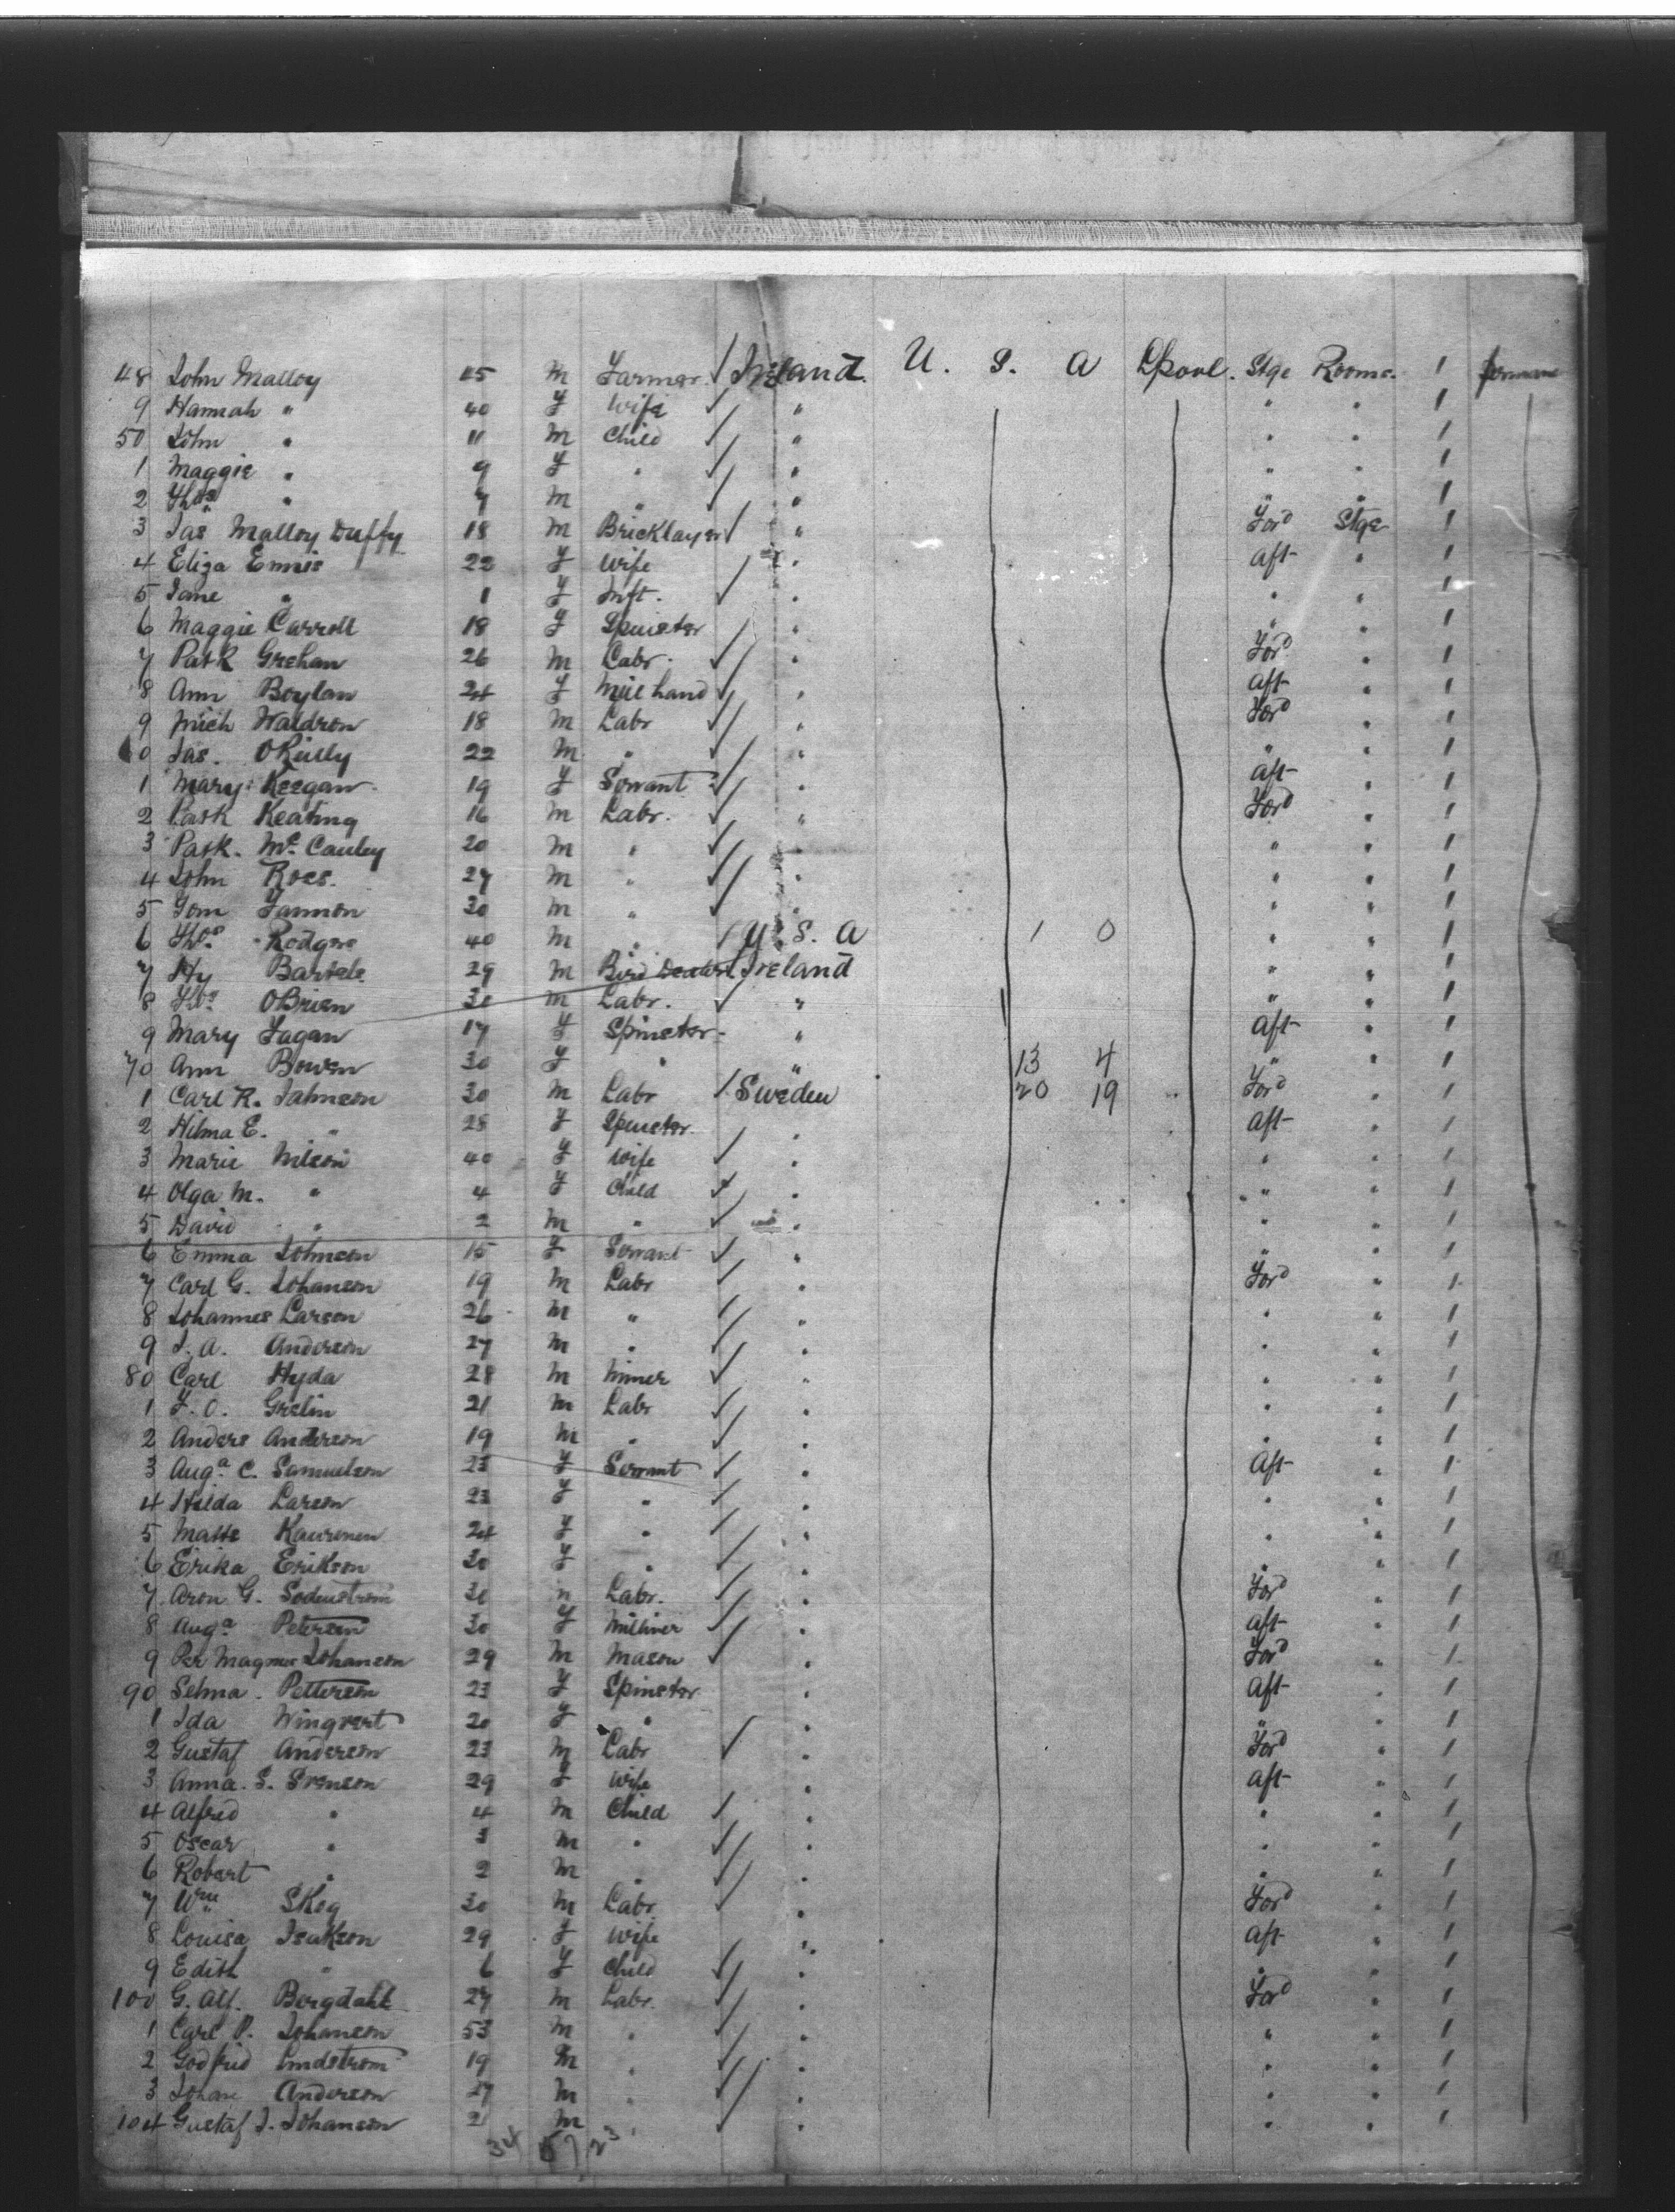 48 John Malloy 45 M Farmer / Ireland U. S. A Lpool. Stge Rooms. 1
9 Hannah " 40 F Wife ✓ " " " 1
50 John " 11 M Child ✓ " " " 1
1 Maggie " 9 F " ✓ " " " 1
2 Thos " 7 M " ✓ " " " 1
3 Jas Malloy Duffy 18 M Bricklayer / " Ford Stge 1
4 Eliza Ennis 22 F Wife " aft " 1
5 Jane " 1 F Inft. ✓ " " " 1
6 Maggie Carroll 18 F Spinster / " " " 1
7 Patk Grehan 26 M Labr. ✓ " Ford " 1
8 Ann Boylan 24 F Mill hand ✓ " aft " 1
9 Mich Waldron 18 M Labr ✓ " Ford " 1
60 Jas. OReilly 22 M " ✓ " " " 1
1 Mary Keegan 19 F Servant ✓ " aft " 1
2 Patk Keating 16 M Labr. ✓ " Ford " 1
3 Patk. Mc Cauley 20 M " ✓ " " " 1
4 John Ross. 27 M " ✓ " " " 1
5 Tom Fannon 30 M " ✓ " " " 1
6 Thos Rodgers 40 M " / U. S. A 1 0 " " 1
7 Hy Bartels 29 M Bird Dealer / Ireland " " 1
8 Thos OBrien 30 M Labr. ✓ " " " 1
9 Mary Fagan 17 F Spinster " aft " 1
70 Ann Bowen 30 F " " 13 4 " " 1
1 Carl R. Johnson 30 M Labr / Sweden 20 19 Ford " 1
2 Hilma E. " 28 F Spinster " aft " 1
3 Marie Nilson 40 F Wife ✓ " " " 1
4 Olga M. " 4 F Child ✓ " " " 1
5 David " 2 M " ✓ " " " 1
6 Emma Johnson 15 F Servant ✓ " " " 1
7 Carl G. Johanson 19 M Labr ✓ " Ford " 1
8 Johannes Larson 26 M " / " " " 1
9 J. A. Anderson 27 M " ✓ " " " 1
80 Carl Hyda 28 M Miner ✓ " " " 1
1 F. O. Grelin 21 M Labr ✓ " " " 1
2 Anders Anderson 19 M " ✓ " " " 1
3 Auga C. Samuelson 23 F Servant ✓ " aft " 1
4 Hilda Larson 23 F " ✓ " " " 1
5 Matte 24 F " ✓ " " " 1
6 Erika Erikson 30 F " ✓ " " " 1
7 Aron G. Soderstrom M Labr. ✓ " Ford " 1
8 Auga Peterson 30 F Milliner ✓ " aft " 1
9 Per Magnus Johanson 29 M Mason ✓ " Ford " 1
90 Selma Petterson 23 F Spinster " aft " 1
1 Ida Wingvert 20 F " " " " 1
2 Gustaf Anderson 23 M Labr ✓ " Ford " 1
3 Anna S. Svenson 29 F Wife " aft " 1
4 Alfred " 4 M Child ✓ " " " 1
5 Oscar " 3 M " ✓ " " " 1
6 Robert " 2 M " ✓ " " " 1
7 Wm Skog 30 M Labr ✓ " Ford " 1
8 Louisa Isakson 29 F Wife " aft " 1
9 Edith " 6 F Child ✓ " " " 1
100 G. Alf. Bergdahl 27 M Labr. ✓ " Ford " 1
1 Carl P. Johanson 53 M " ✓ " " " 1
2 Godfrid Lindstrom 19 M " ✓ " " " 1
3 Johan Anderson 27 M " ✓ " " " 1
104 Gustaf J. Johanson 21 M " ✓ " " " 1
34